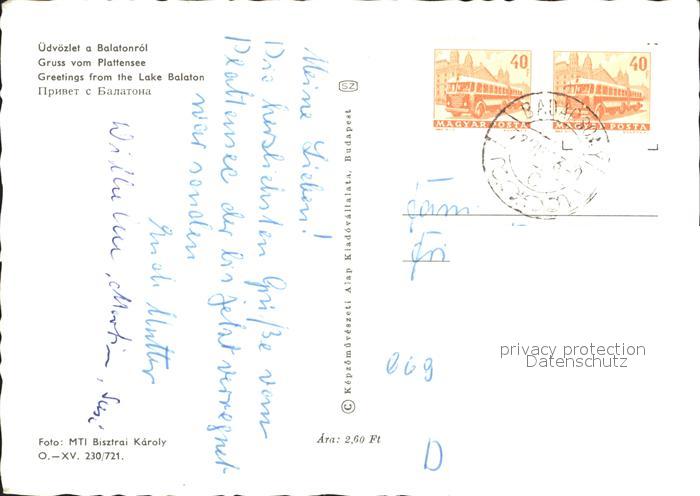 Üdvözlet a Balatonról
Gruss vom Plattensee
Greetings from the Lake Balaton
Привет с Балатона
Meine Lieben!
Die herzlichsten Grüße vom
Plattensee der bis jetzt verregnet
war senden
Eure Mutter
Wilhelm, Martin,
Foto: MTI Bisztrai Károly
O.—XV. 230/721.
SZ
© Képzőművészeti Alap Kiadóvállalata, Budapest
Ára: 2,60 Ft
40
MAGYAR POSTA
40
MAGYAR POSTA
BADACSONY
Fam.
D
privacy protection
Datenschutz